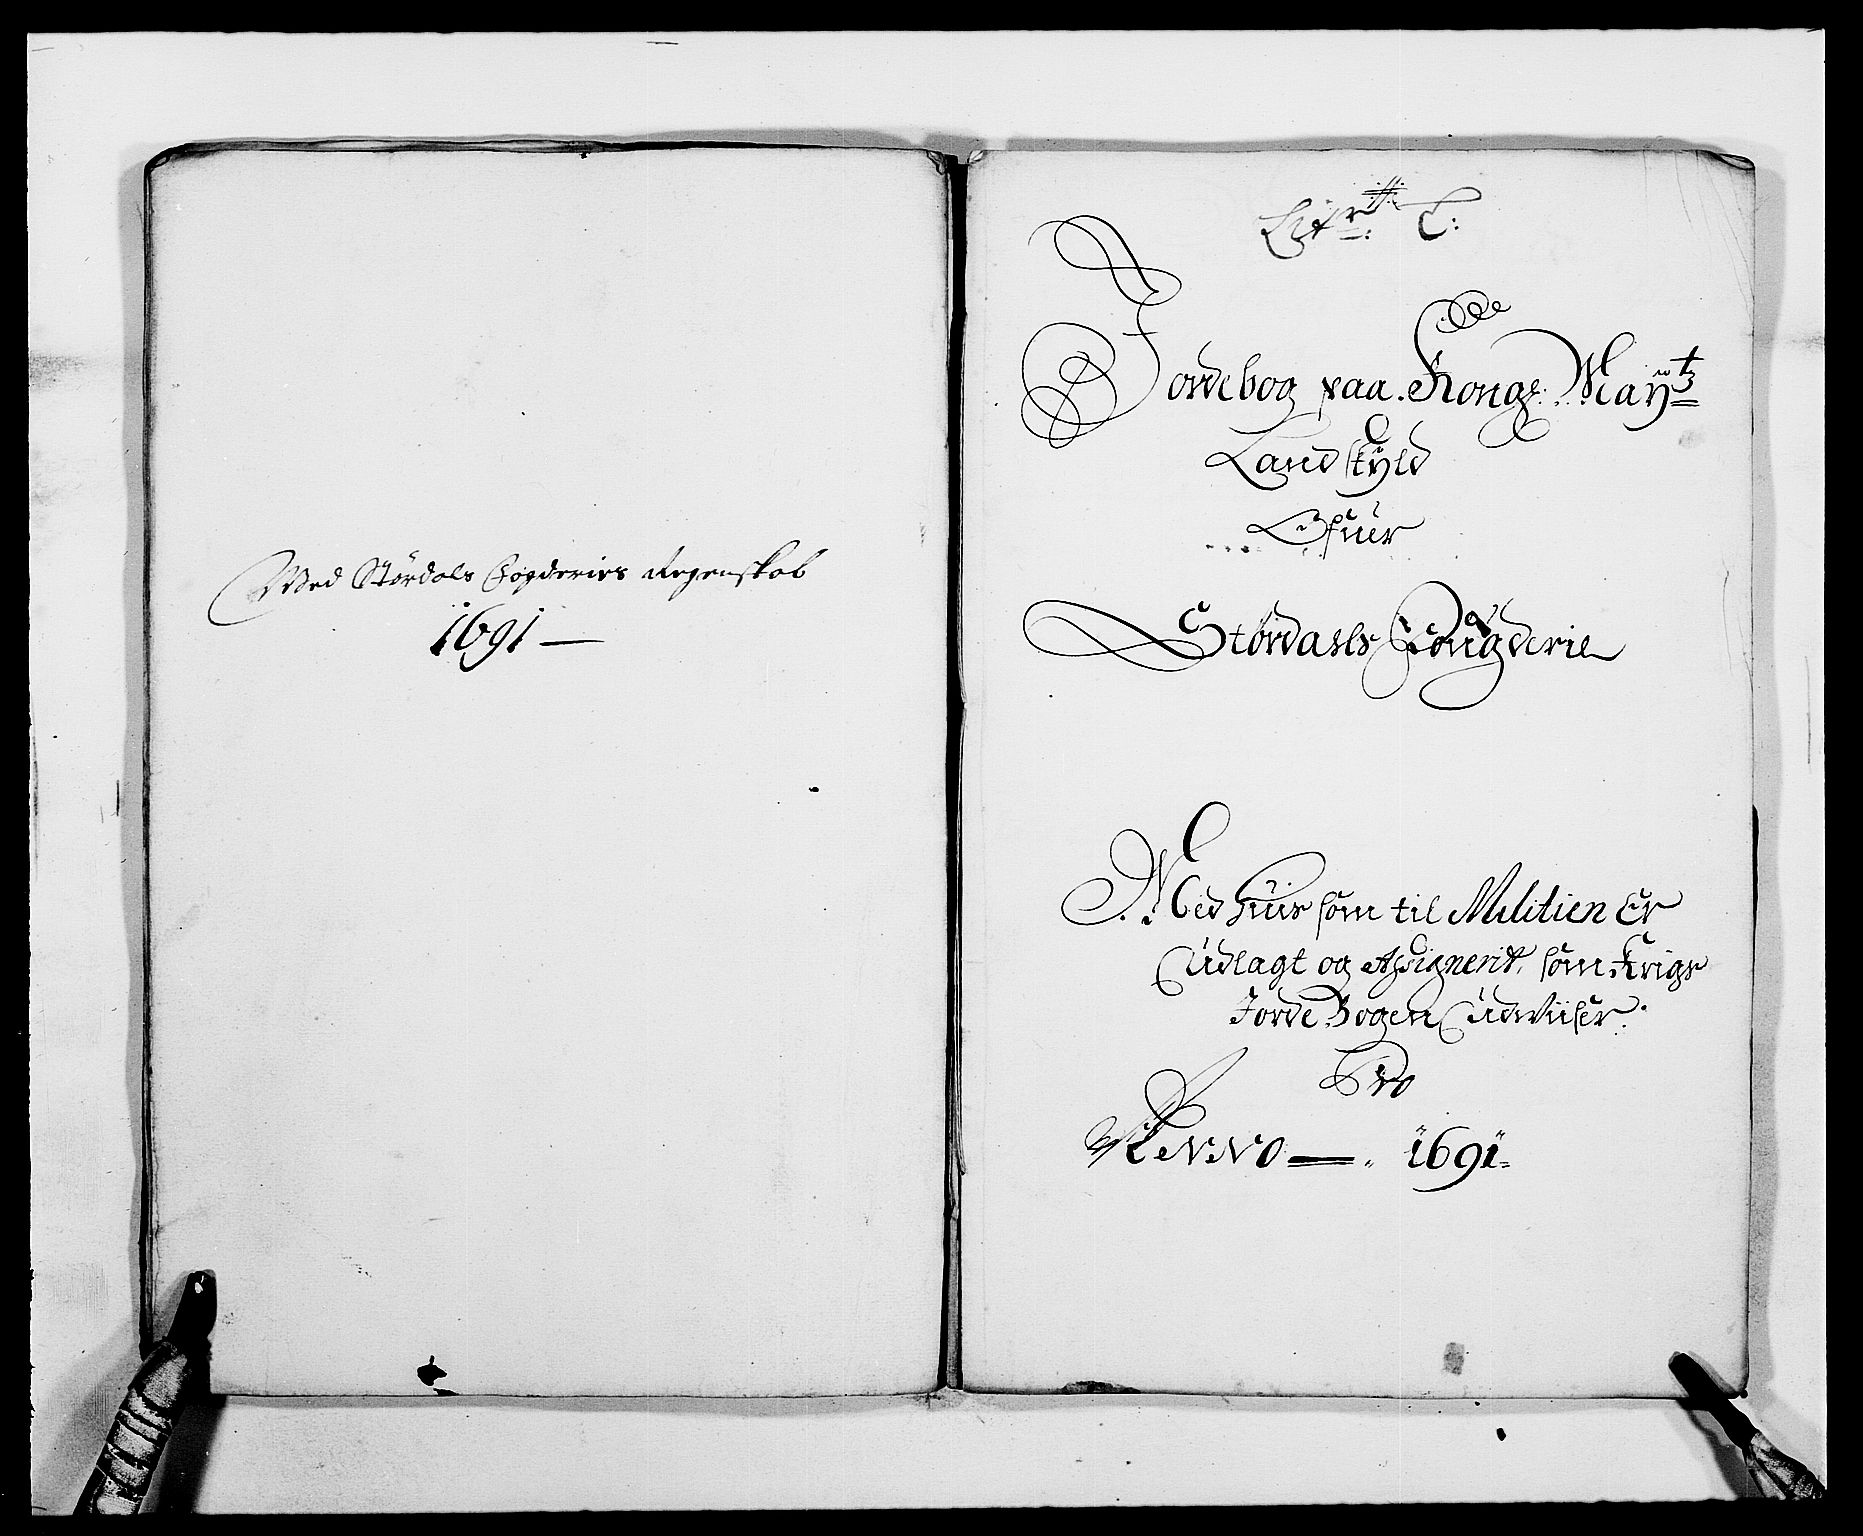 Med Størdals Fogderies Regenskab
1691
Litr: C:
Jordebog paa Kongl: Mayᵗᶻ
Landskyld
Ofuer
Størdahls Fougderie
Med huis som til Militien Er
Udlagt og Assignerit, som Krigs
Jorde Bogen Udviiser.
Pro
ANNO 1691